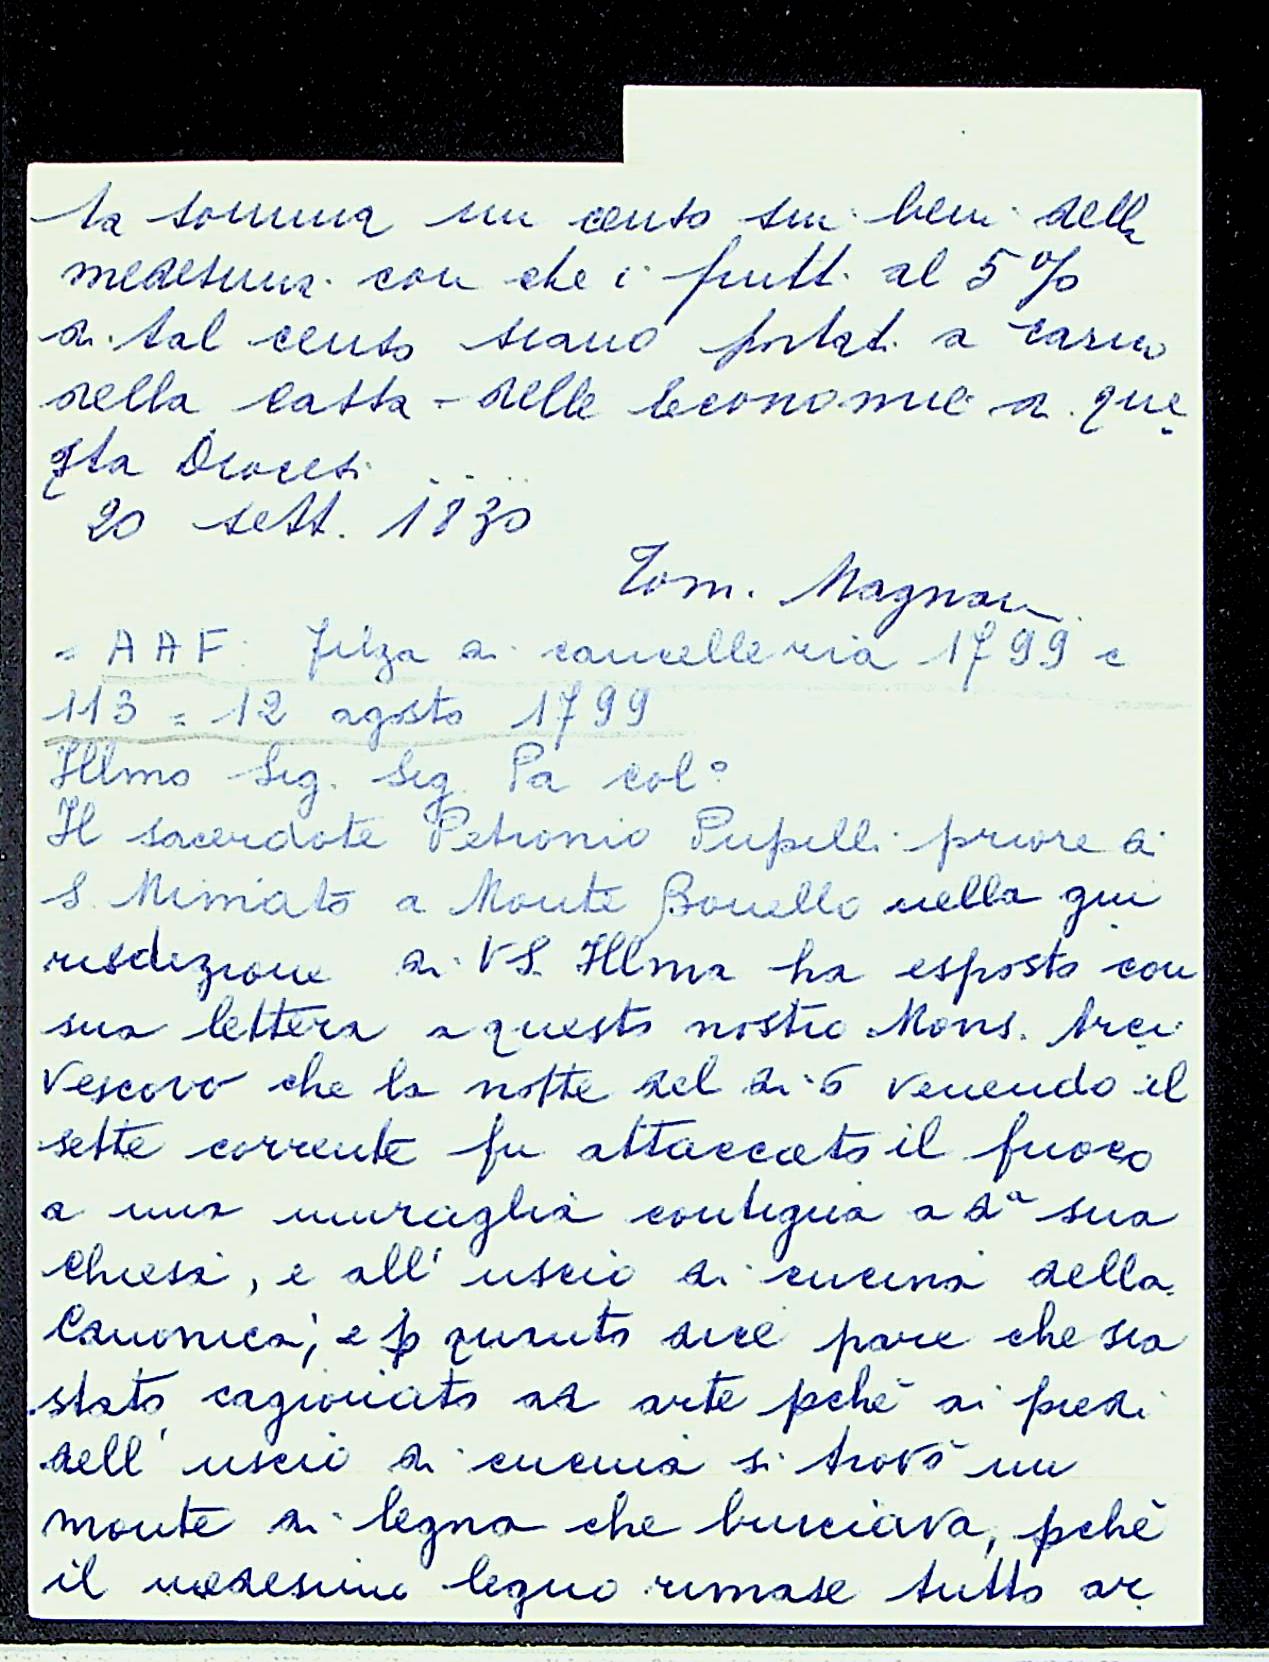 ta somma un censo sui beni della
medesima con che i frutti al 5%
di tal censo siano portati a carico
della cassa delle economie di que
sta Diocesi . . . .
20 sett. 1830
Tom. Magnani
= AAF: Filza di cancelleria 1799 c
113 = 12 agosto 1799
Illmo Sig. Sig. Pa col°
Il sacerdote Petronio Pupilli priore di
S. Miniato a Monte Bonello nella giu
risdizione di VS. Illma ha esposto con
sua lettera a questo nostro Mons. Arci
vescovo che la notte del dì 6 venendo il
sette corrente fu attaccato il fuoco
a una muraglia contigua a da sua
Chiesa, e all' uscio di cucina della
Canonica; e p quanto dice pare che sia
stato cagionato ad arte pchè ai piedi
dell' uscio di cucina si trovò un
monte di legna che bruciava, pchè
il medesimo legno rimase tutto ar